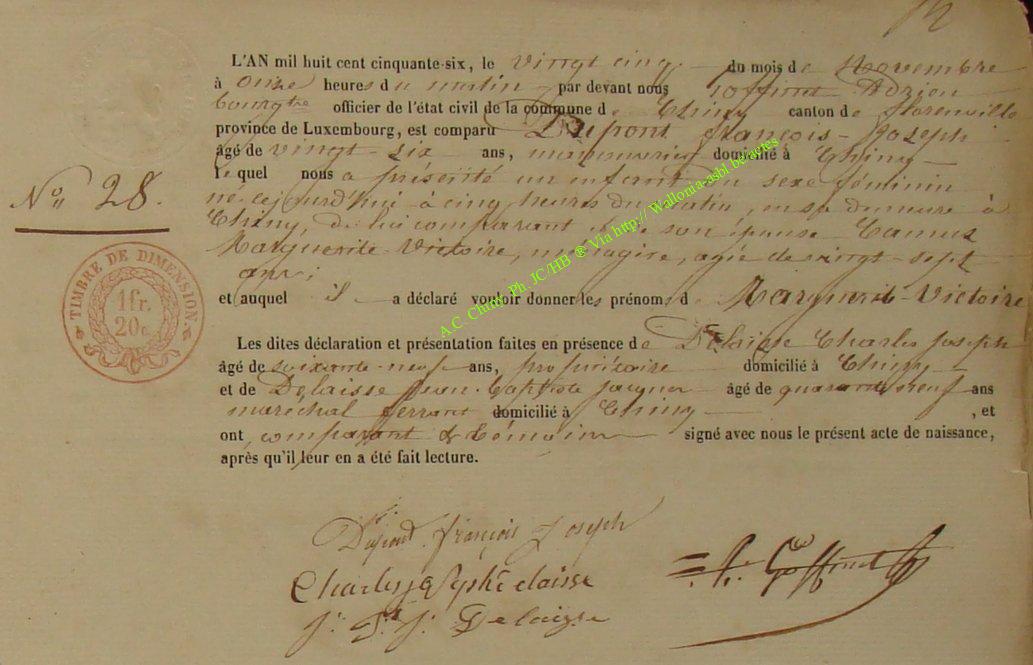 L'AN mil huit cent cinquante-six, le vingt cinq du mois de Novembre
à onze heures du matin par devant nous Goffinet Adrien
bourgtre officier de l'état civil de la commune de Chiny canton de Florenville
province de Luxembourg, est comparu Dupont François-Joseph
âgé de vingt-six ans, domicilié à Chiny
lequel nous a présenté un enfant du sexe féminin
né cejourd'hui à cinq heures du matin, en sa demeure à
Chiny, de lui comparant et de son épouse Camus
Marguerite-Victoire, ménagère, agée de vingt-sept
ans;
et auquel il a déclaré vouloir donner les prénoms de Marguerite-Victoire
Les dites déclaration et présentation faites en présence de Delaisse Charles Joseph
âgé de soixante-neuf ans, propriétaire domicilié à Chiny
et de Delaisse Jean-Baptiste âgé de quarante neuf ans
maréchal ferrant domicilié à Chiny , et
ont comparant & témoins signé avec nous le présent acte de naissance,
après qu'il leur en a été fait lecture.
No 28.
TIMBRE DE DIMENSION.
1fr.
20c.
A.C. Chiny, Ph. JC/HB ® Via http:// Wallonia-asbl.be/actes
Dupont François Joseph
Charles joseph Delaisse
J. B. J. Delaisse
A. Goffinet